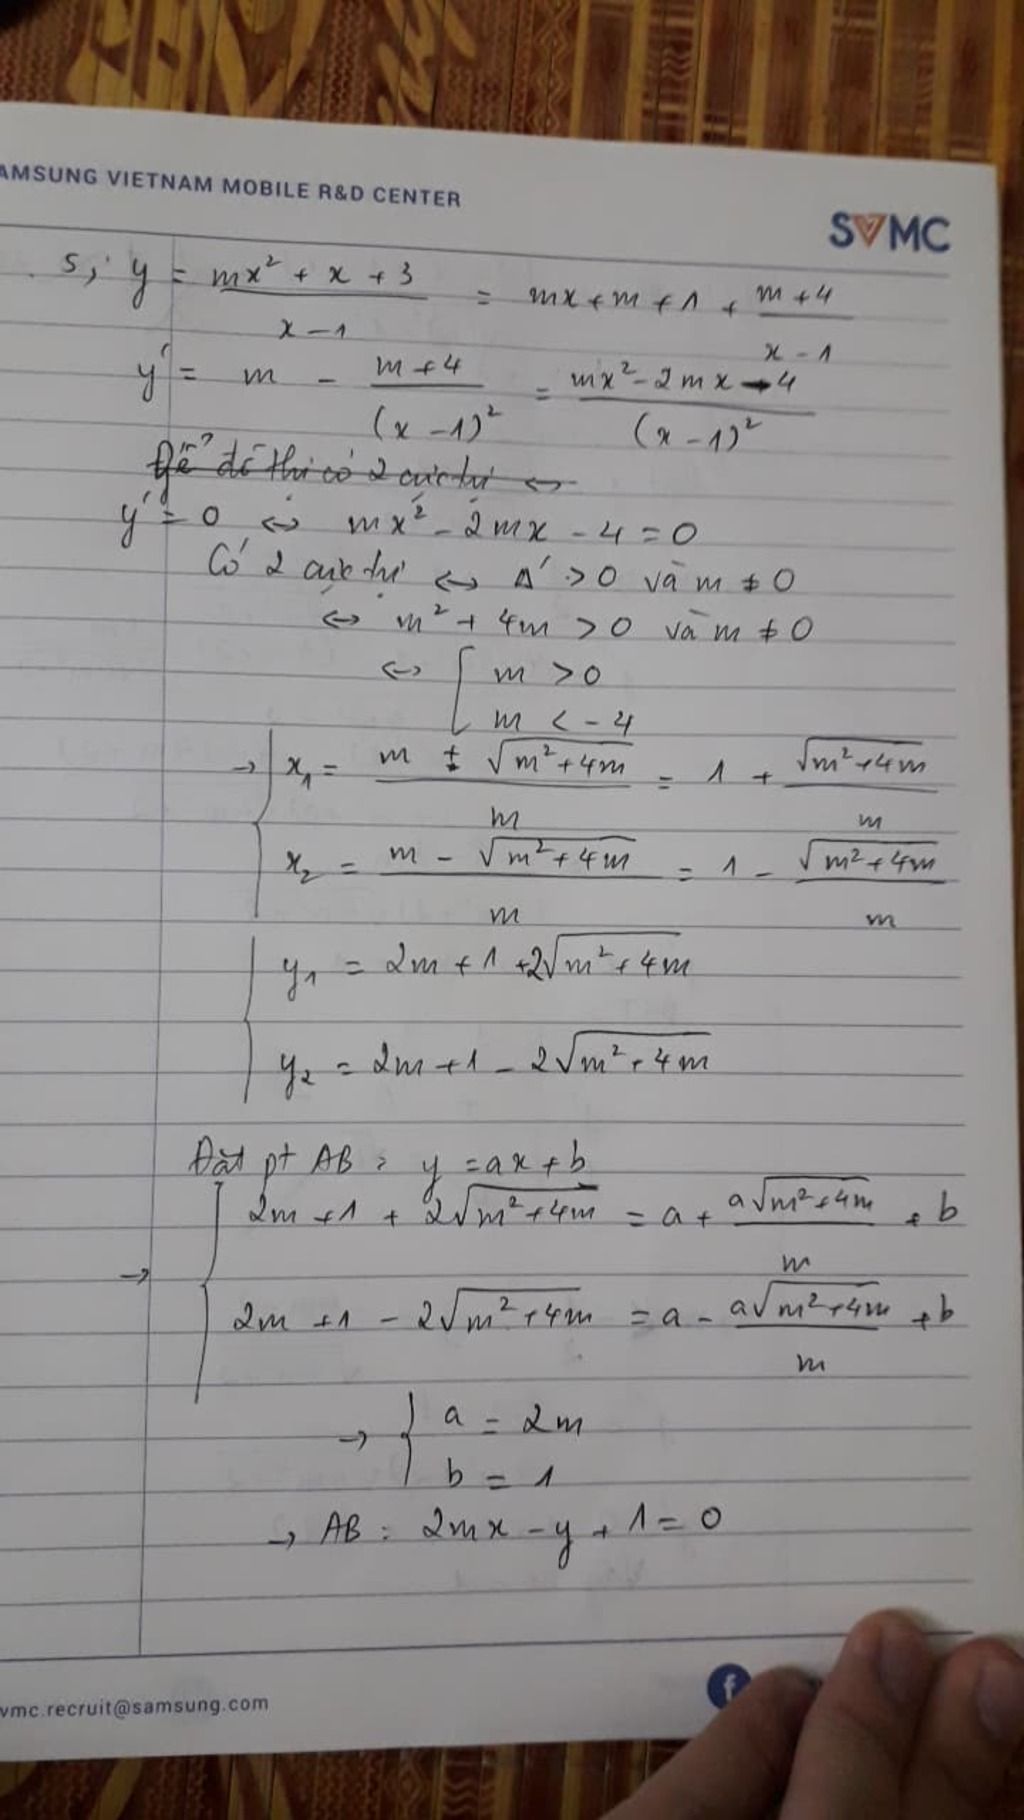 AMSUNG VIETNAM MOBILE R&D CENTER
SVMC
5, y = (mx² + x + 3)/(x - 1) = mx + m + 1 + (m + 4)/(x - 1)
y' = m - (m + 4)/(x - 1)² = (mx² - 2mx - 4)/(x - 1)²
Để đồ thị có 2 cực trị ⇔
y' = 0 ⇔ mx² - 2mx - 4 = 0
Có 2 cực trị ⇔ Δ' > 0 và m ≠ 0
⇔ m² + 4m > 0 và m ≠ 0
⇔ [ m > 0
m < -4
→ x₁ = (m + √(m² + 4m))/m = 1 + √(m² + 4m)/m
x₂ = (m - √(m² + 4m))/m = 1 - √(m² + 4m)/m
y₁ = 2m + 1 + 2√(m² + 4m)
y₂ = 2m + 1 - 2√(m² + 4m)
Đặt pt AB: y = ax + b
→ { 2m + 1 + 2√(m² + 4m) = a + a√(m² + 4m)/m + b
2m + 1 - 2√(m² + 4m) = a - a√(m² + 4m)/m + b
→ { a = 2m
b = 1
→ AB: 2mx - y + 1 = 0
vmc.recruit@samsung.com
f